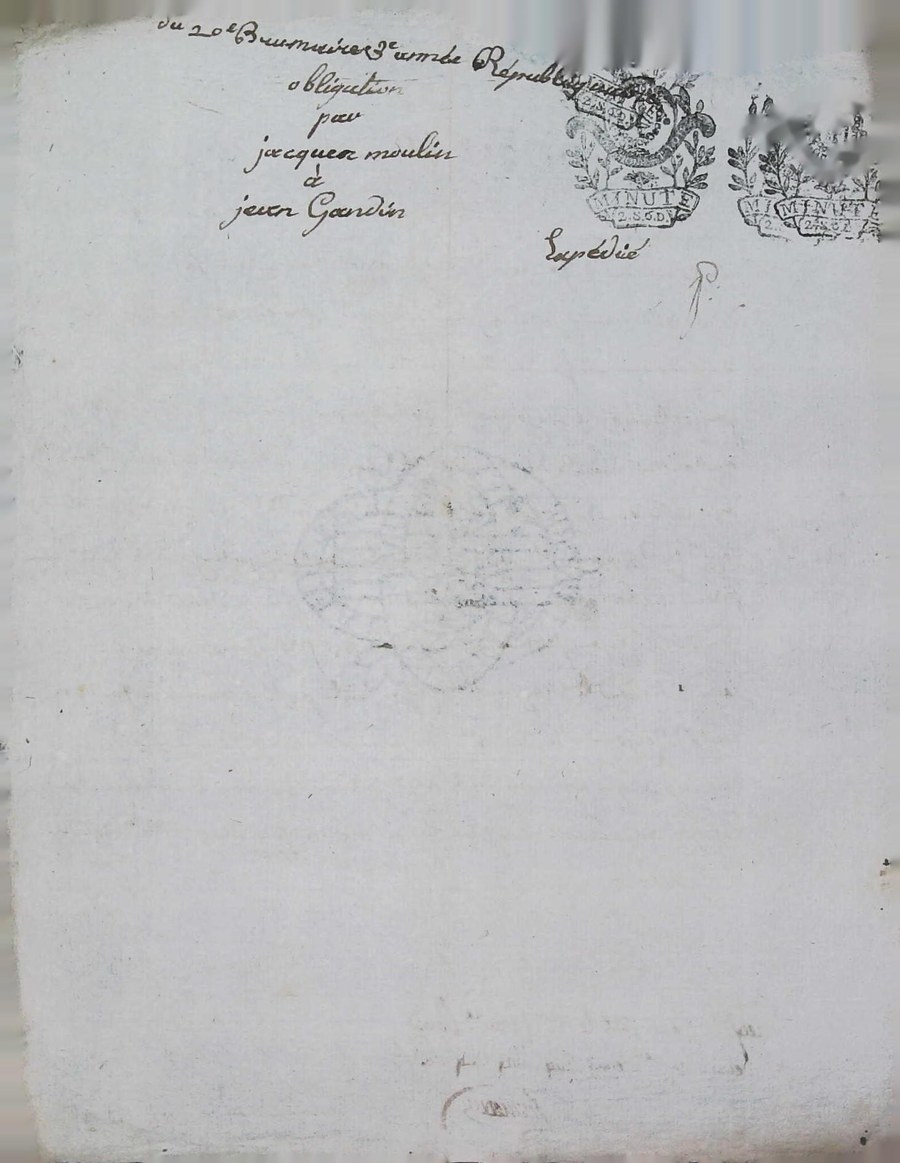 du 20e Brumaire 3e année Républiquaine
obligation
par
jacques moulin
à
jean Gandin
Expédié
2.S.6.D.
MINUTE
2.S.6.D.
MINUTE
2.S.6.D.